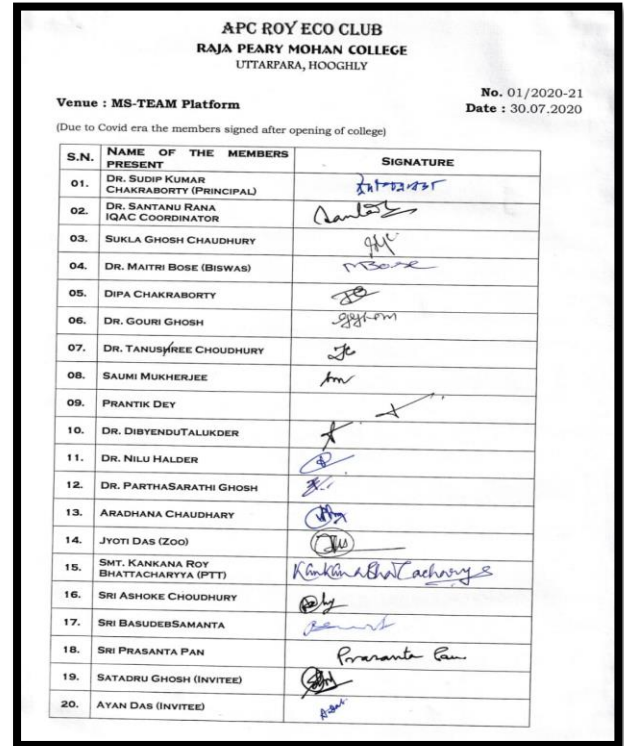 APC ROY ECO CLUB
RAJA PEARY MOHAN COLLEGE
UTTARPARA, HOOGHLY
No. 01/2020-21
Venue : MS-TEAM Platform
Date : 30.07.2020
(Due to Covid era the members signed after opening of college)
S.N. NAME OF THE MEMBERS PRESENT SIGNATURE
01. DR. SUDIP KUMAR
CHAKRABORTY (PRINCIPAL)
02. DR. SANTANU RANA
IQAC COORDINATOR
03. SUKLA GHOSH CHAUDHURY
04. DR. MAITRI BOSE (BISWAS) MBose
05. DIPA CHAKRABORTY
06. DR. GOURI GHOSH
07. DR. TANUSHREE CHOUDHURY
08. SAUMI MUKHERJEE
09. PRANTIK DEY
10. DR. DIBYENDUTALUKDER
11. DR. NILU HALDER
12. DR. PARTHASARATHI GHOSH
13. ARADHANA CHAUDHARY
14. JYOTI DAS (ZOO)
15. SMT. KANKANA ROY
BHATTACHARYYA (PTT)
16. SRI ASHOKE CHOUDHURY
17. SRI BASUDEBSAMANTA
18. SRI PRASANTA PAN Prasanta Pan
19. SATADRU GHOSH (INVITEE)
20. AYAN DAS (INVITEE)